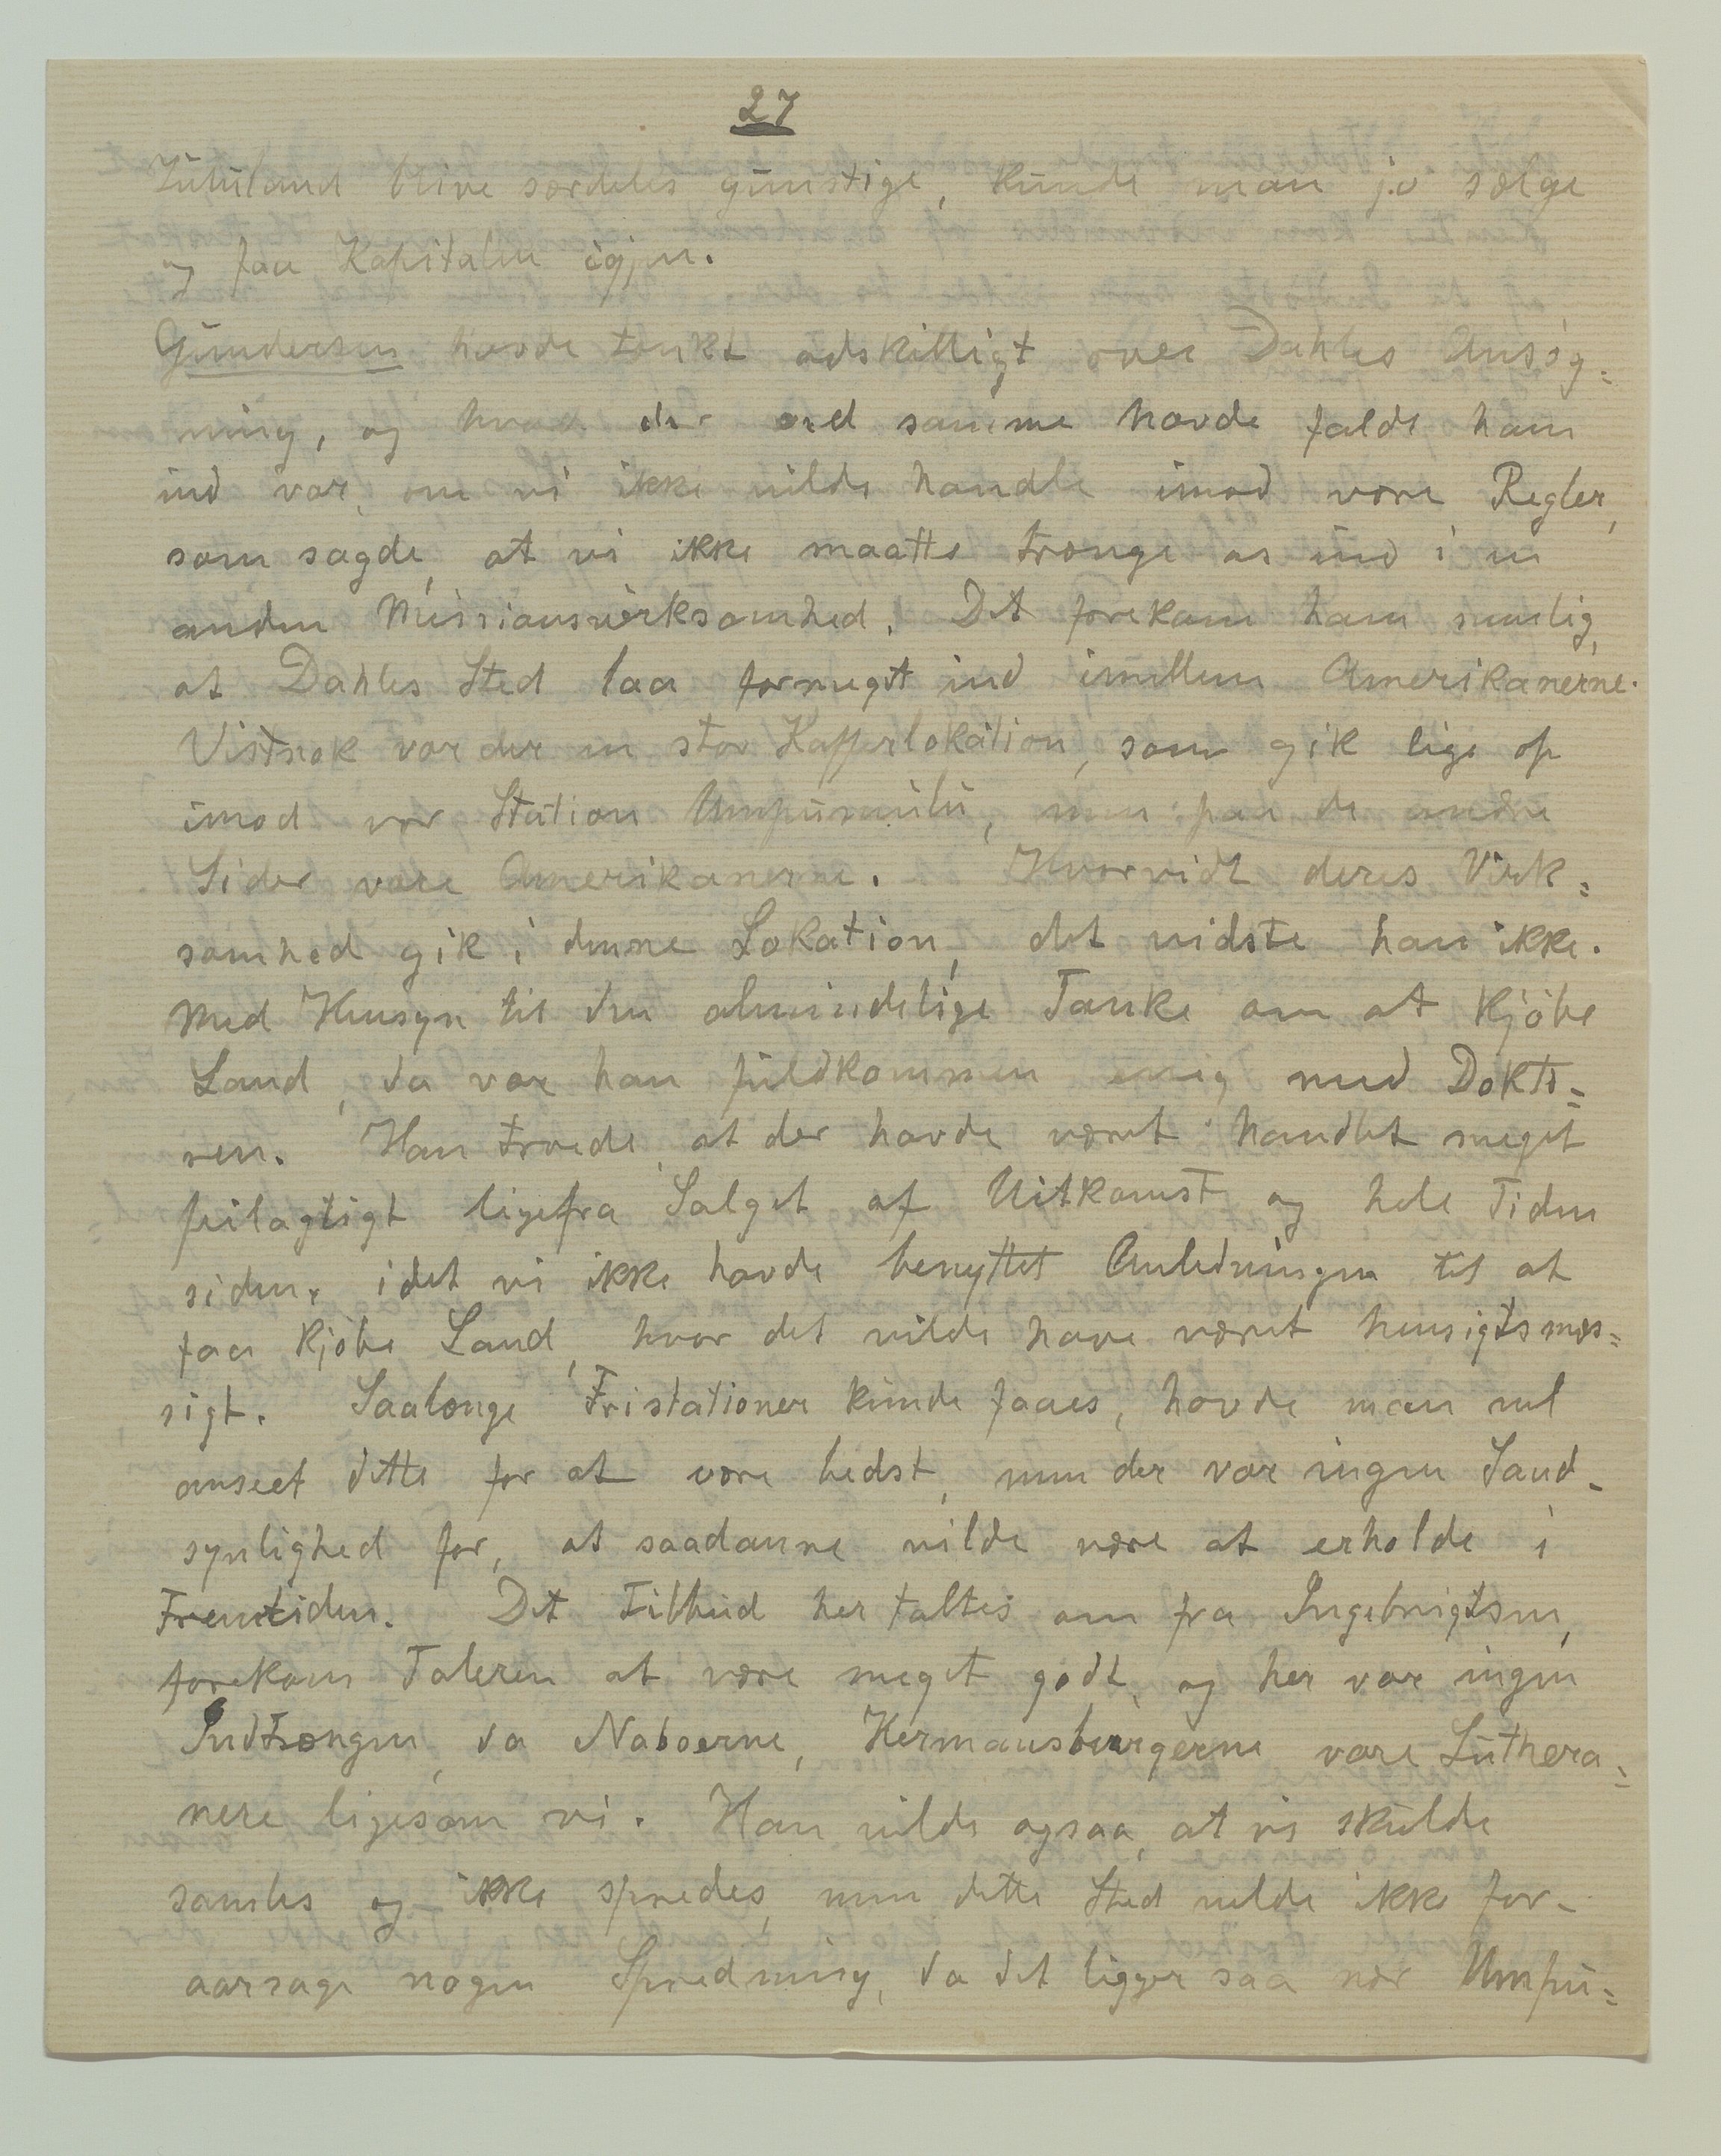 27
Zululand blive særdeles gunstige, kunde man jo sælge
og faa Kapitalen igjen.
Gundersen havde tænkt adskilligt over Dahles Ansøg=
ning, og hvad der ved samme havde faldt ham
ind var, om vi ikke vilde handle imod vore Regler,
som sagde, at vi ikke maatte trænge os ind i en
anden Missionsvirksomhed. Det forekom ham nemlig,
at Dahles Sted laa formeget ind imellem Amerikanerne.
Vistnok var der en stor Kafferlokation, som gik lige op
imod vor Station Umpumulu, men paa de andre
Sider vare Amerikanerne. Hvorvidt deres Virk=
somhed gik i denne Lokation, det vidste han ikke.
Med Hensyn til den almindelige Tanke om at kjøbe
Land, da var han fuldkommen enig med Dokto=
ren. Han troede, at der havde været handlet meget
feilagtigt ligefra Salget af Uitkomst og hele Tiden
siden, idet vi ikke havde benyttet Anledningen til at
faa kjøbe Land, hvor det vilde have været hensigtsmæs=
sigt. Saalænge Fristationer kunde faaes, havde man vel
anseet dette for at være bedst, men der var ingen Sand=
synlighed for, at saadanne vilde være at erholde i
Fremtiden. Det Tilbud her taltes om fra Ingebrigtsen,
forekom Taleren at være meget godt, og her var ingen
Indtrængen, da Naboerne, Hermansburgerne vare Luthera=
nere ligesom vi. Han vilde ogsaa, at vi skulde
samles og ikke spredes, men dette Sted vilde ikke for=
aarsage nogen Spredning, da det ligger saa nær Umpu=